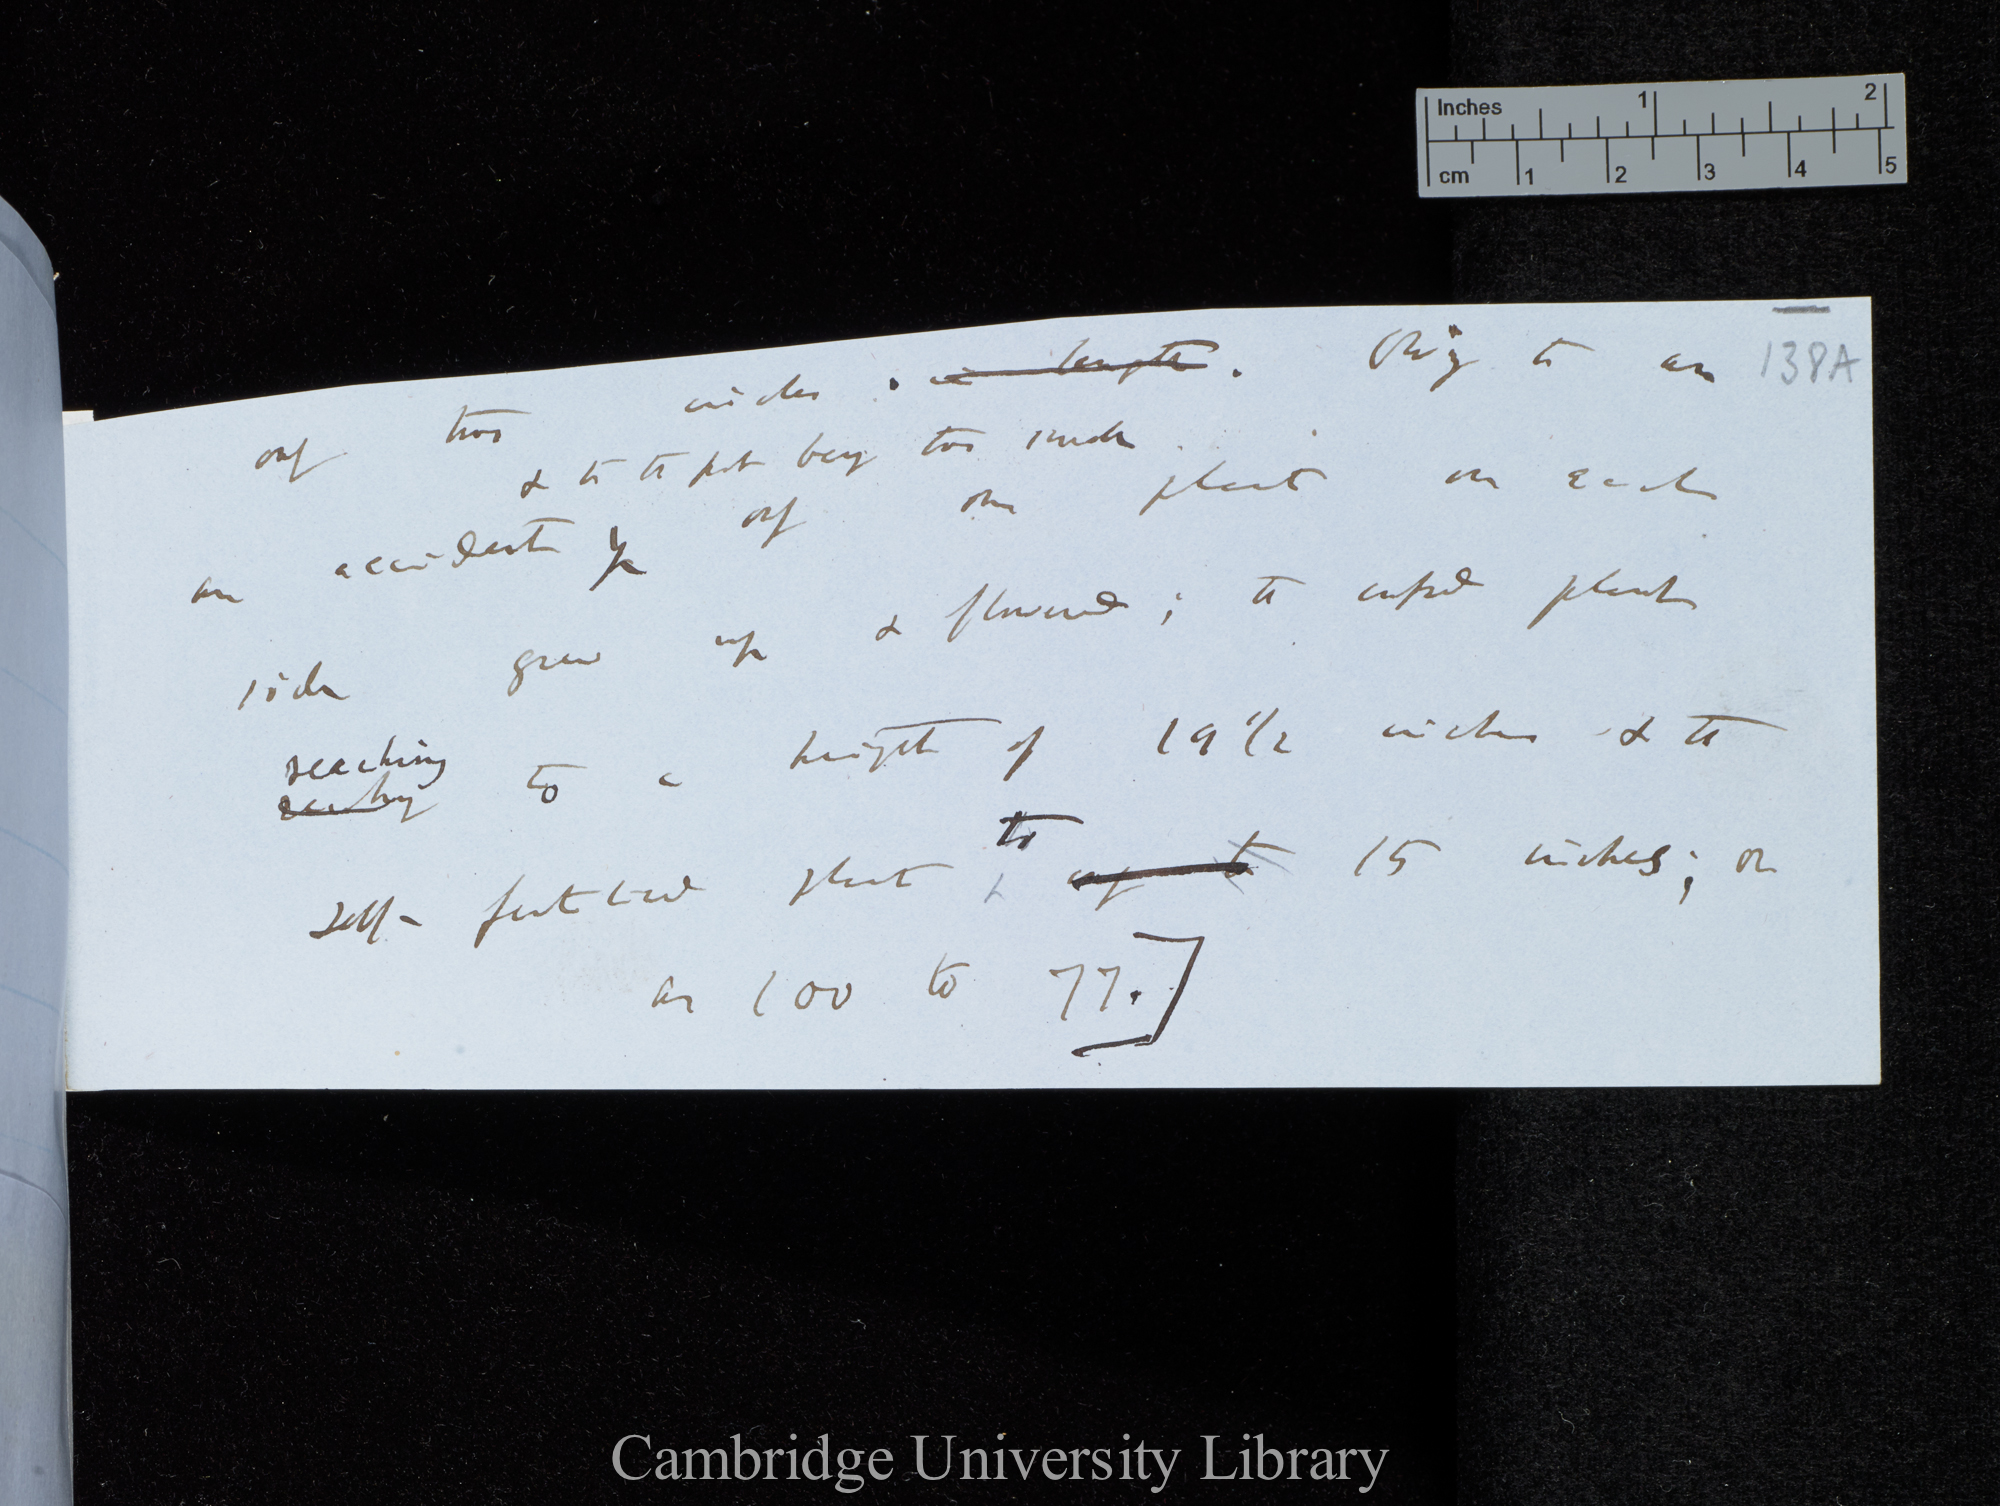 Inches 1 2
cm 1 2 3 4 5
138A
only two inches . in length. Owing to an
& to the pots being too small
an accident only one plant on each
side grew up & flowered; the crossed plant
reaching
reaching to a height of 19 1/2 inches & the
to
self-fertilised plant, only to 15 inches; or
as 100 to 77.]
Cambridge University Library